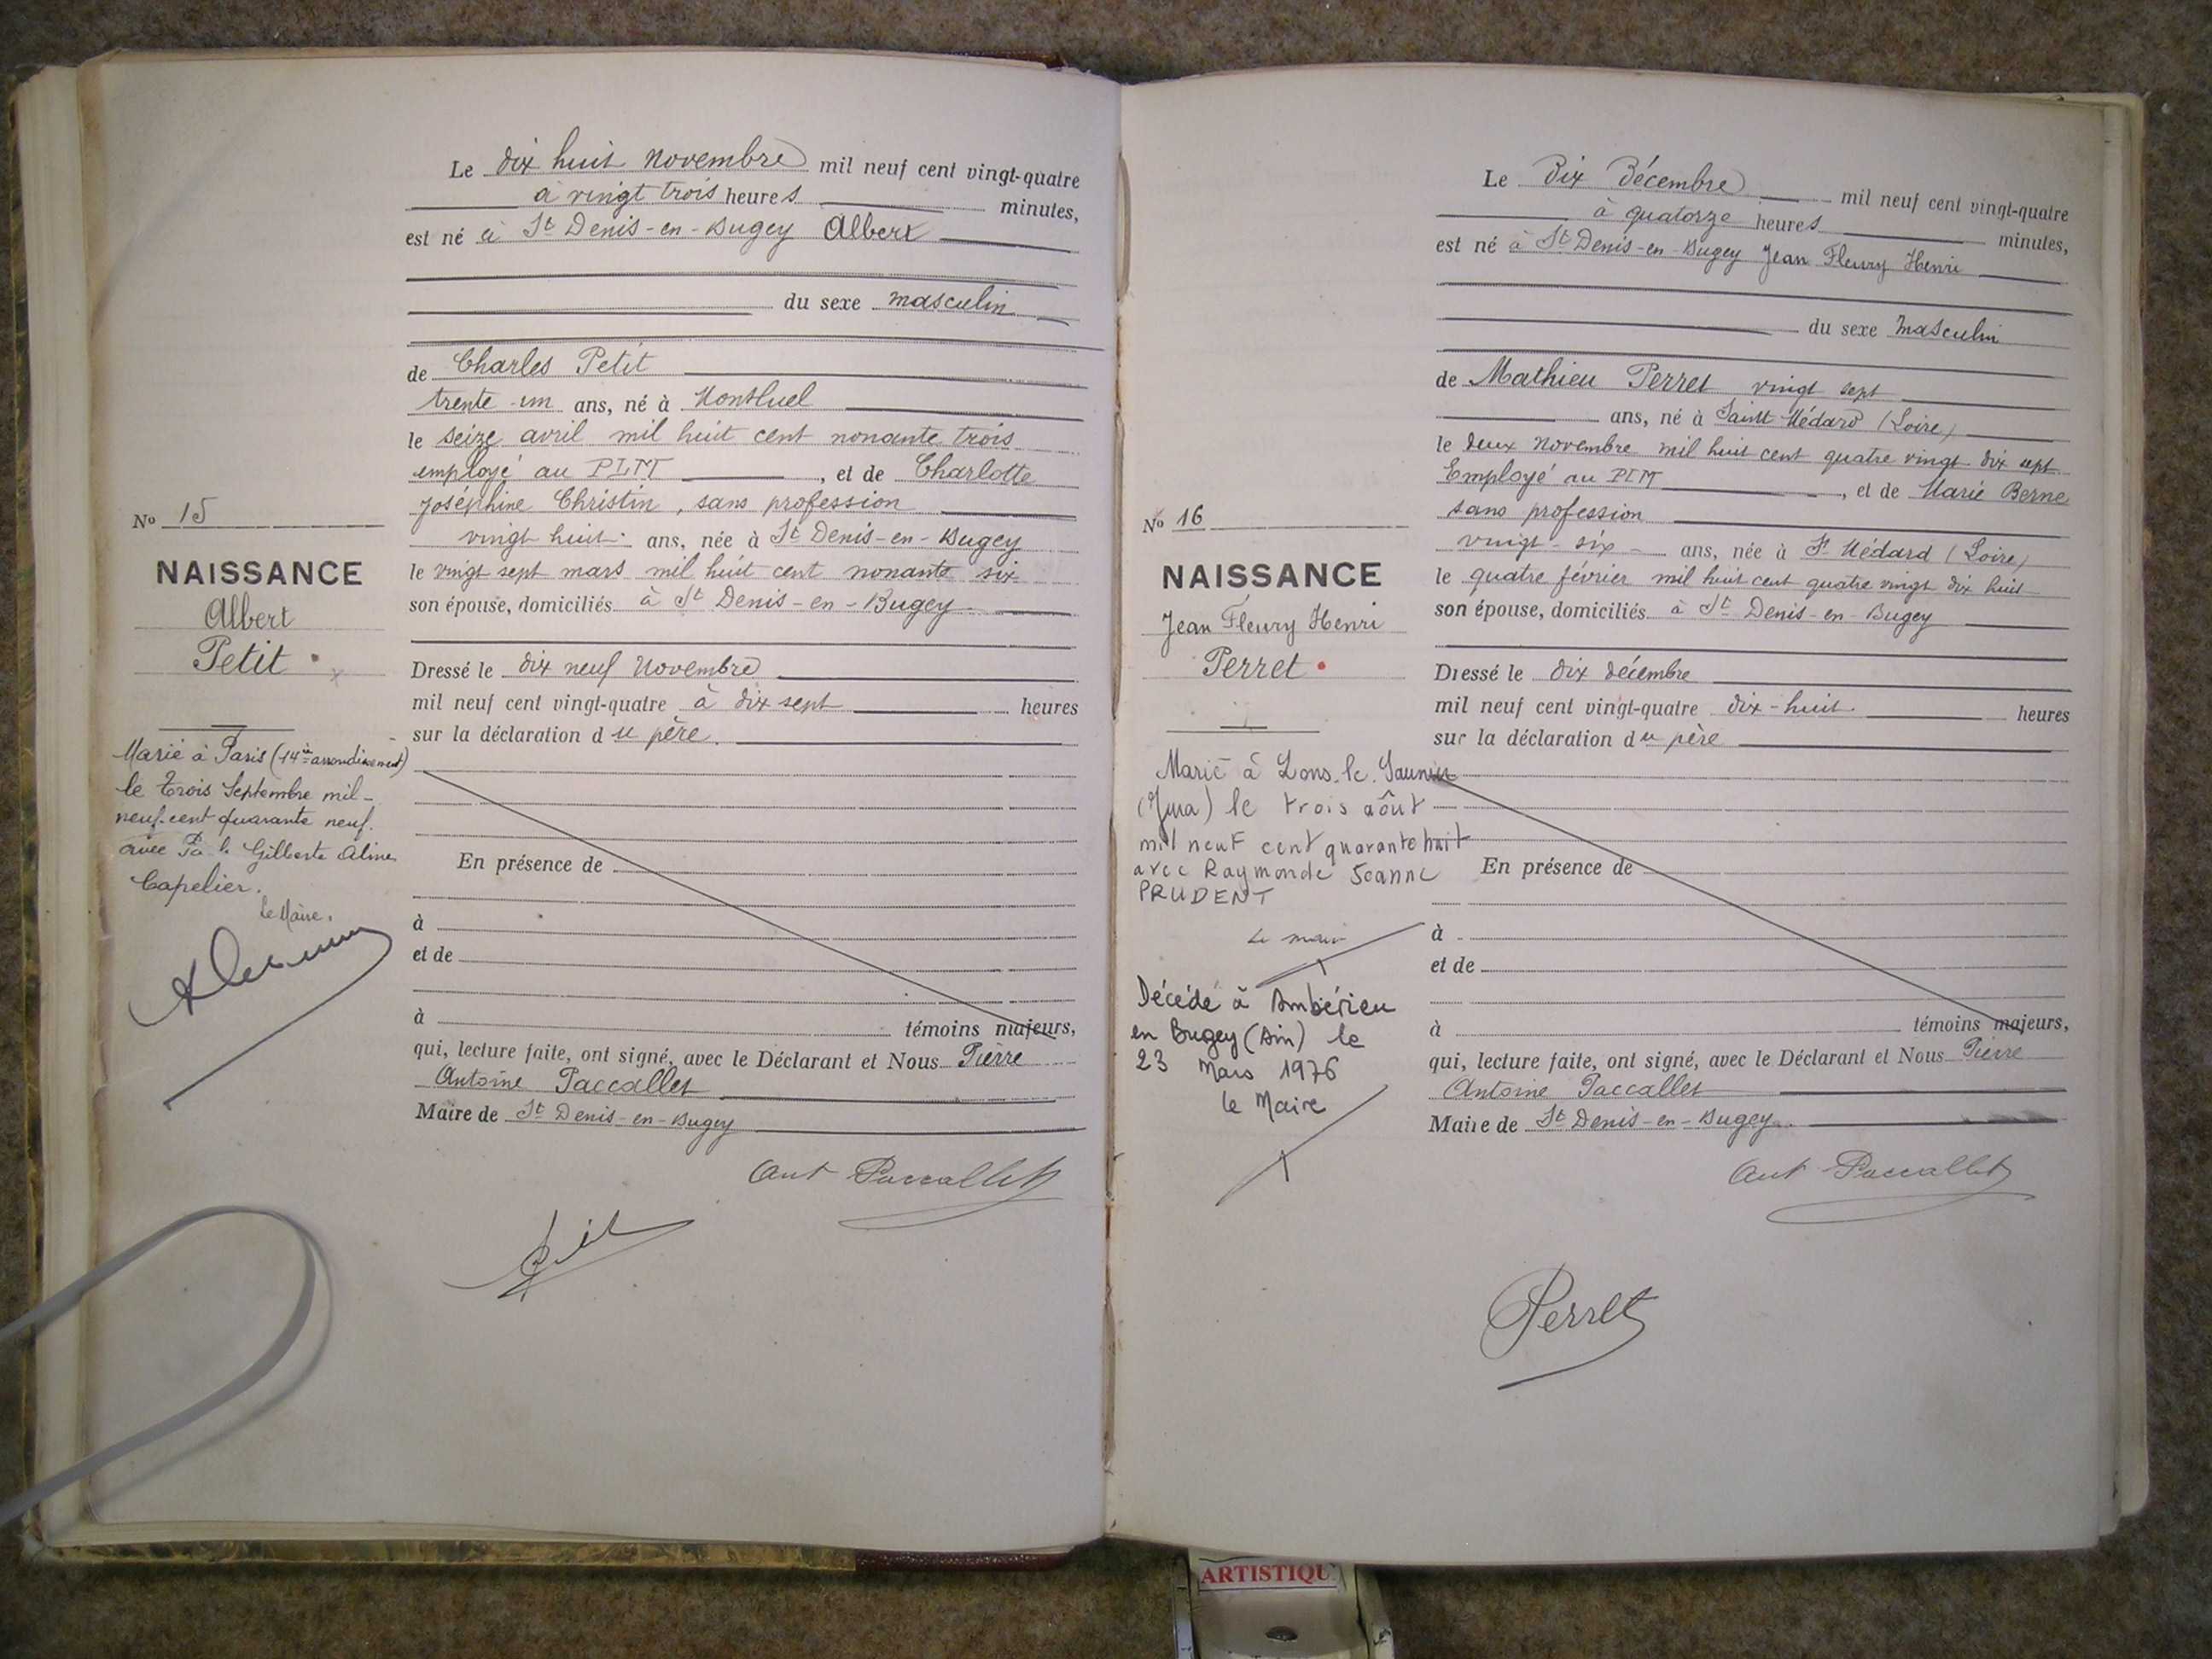 Le dix huit novembre mil neuf cent vingt-quatre
à vingt trois heures minutes,
est né à St Denis-en-Bugey Albert
du sexe masculin
de Charles Petit
trente un ans, né à Montluel
le seize avril mil huit cent nonante trois
employé au PLM, et de Charlotte
Joséphine Christin, sans profession
vingt huit ans, née à St Denis-en-Bugey
le vingt sept mars mil huit cent nonante six
son épouse, domiciliés à St Denis-en-Bugey
Dressé le dix neuf Novembre
mil neuf cent vingt-quatre à dix sept heures
sur la déclaration du père.
En présence de
à
et de
à témoins majeurs,
qui, lecture faite, ont signé, avec le Déclarant et Nous Pierre
Antoine Paccallet
Maire de St Denis-en-Bugey
Ant Paccallet
No 15
NAISSANCE
Albert
Petit
Marié à Paris (14e arrondissement)
le trois Septembre mil-
neuf-cent quarante neuf.
avec Gilberte Aline
Capelier.
le Maire.
Le Dix Décembre mil neuf cent vingt-quatre
à quatorze heures minutes,
est né à St Denis-en-Bugey Jean Fleury Henri
du sexe masculin
de Mathieu Perret vingt sept
ans, né à Saint Médard (Loire)
le deux Novembre mil huit cent quatre vingt dix sept
Employé au PLM, et de Marie Berne
sans profession
vingt-six ans, née à St Médard (Loire)
le quatre février mil huit cent quatre vingt dix huit
son épouse, domiciliés à St Denis-en-Bugey
Dressé le dix décembre
mil neuf cent vingt-quatre dix-huit heures
sur la déclaration du père
En présence de
à
et de
à témoins majeurs,
qui, lecture faite, ont signé, avec le Déclarant et Nous Pierre
Antoine Paccallet
Maire de St Denis-en-Bugey
Ant Paccallet
Perret
No 16
NAISSANCE
Jean Fleury Henri
Perret
Marié à Lons-le-Saunier
(Jura) le trois août
mil neuf cent quarante huit
avec Raymonde Jeanne
PRUDENT
Le maire
Décédé à Ambérieu
en Bugey (Ain) le
23 Mars 1976
le Maire
ARTISTIQU